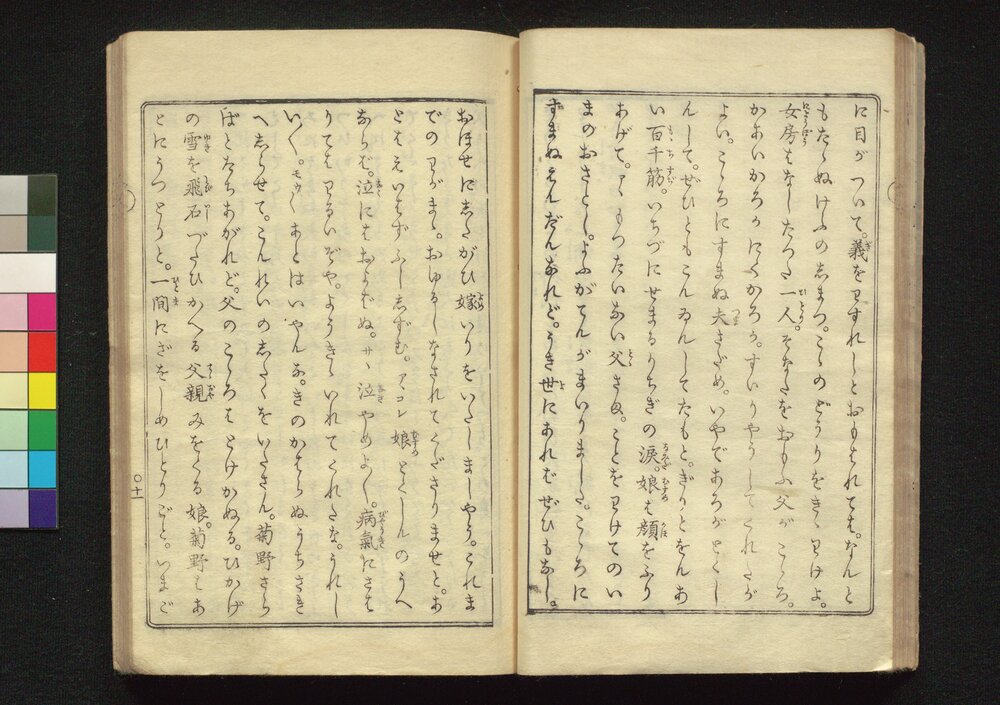 に目がついて。義をわすれしとおもはれては。なんと
もたゝぬけふのしまつ。こゝのどうりをきゝわけよ。
女房はなしたつた一人。そなたをおもふ父がこゝろ。
かあいかろかにくかろか。すいりやうしてくれたが
よい。こゝろにすまぬ夫さだめ。いやであろがとくし
んして。ぜひともこんゐんしてたも。ぎりとをんあ
い百千筋。いちづにせまるりちぎの涙。娘は顔をふり
あげて。アヽもつたいない父さま。ことをわけてのい
まのおさとし。よふがてんがまいりました。こゝろに
すまぬゑんだんなれど。うき世にあればぜひもなし。
おほせにしたがひ嫁いりをいたしましやう。これま
でのわがまゝ。おゆるしなされてくださりませと。あ
とはえいはずふししずむ。アコレ娘とくしんのうへ
ならば。泣にはおよばぬ。サヽ泣やめよ〳〵。病氣にさは
りてはわるいぞや。ようきゝいれてくれたな。うれし
い〳〵。モウ〳〵あとはいやんな。きのかはらぬうちさき
へしらせて。こんれいのしたくをいたさん。菊野さら
ばとたちあがれど。父のこゝろはとけかぬる。ひかげ
の雪を飛石づたひかへる父親みをくる娘。菊野はあ
とにうつとりと。一間にざをしめひとりごと。いまご
〇十一